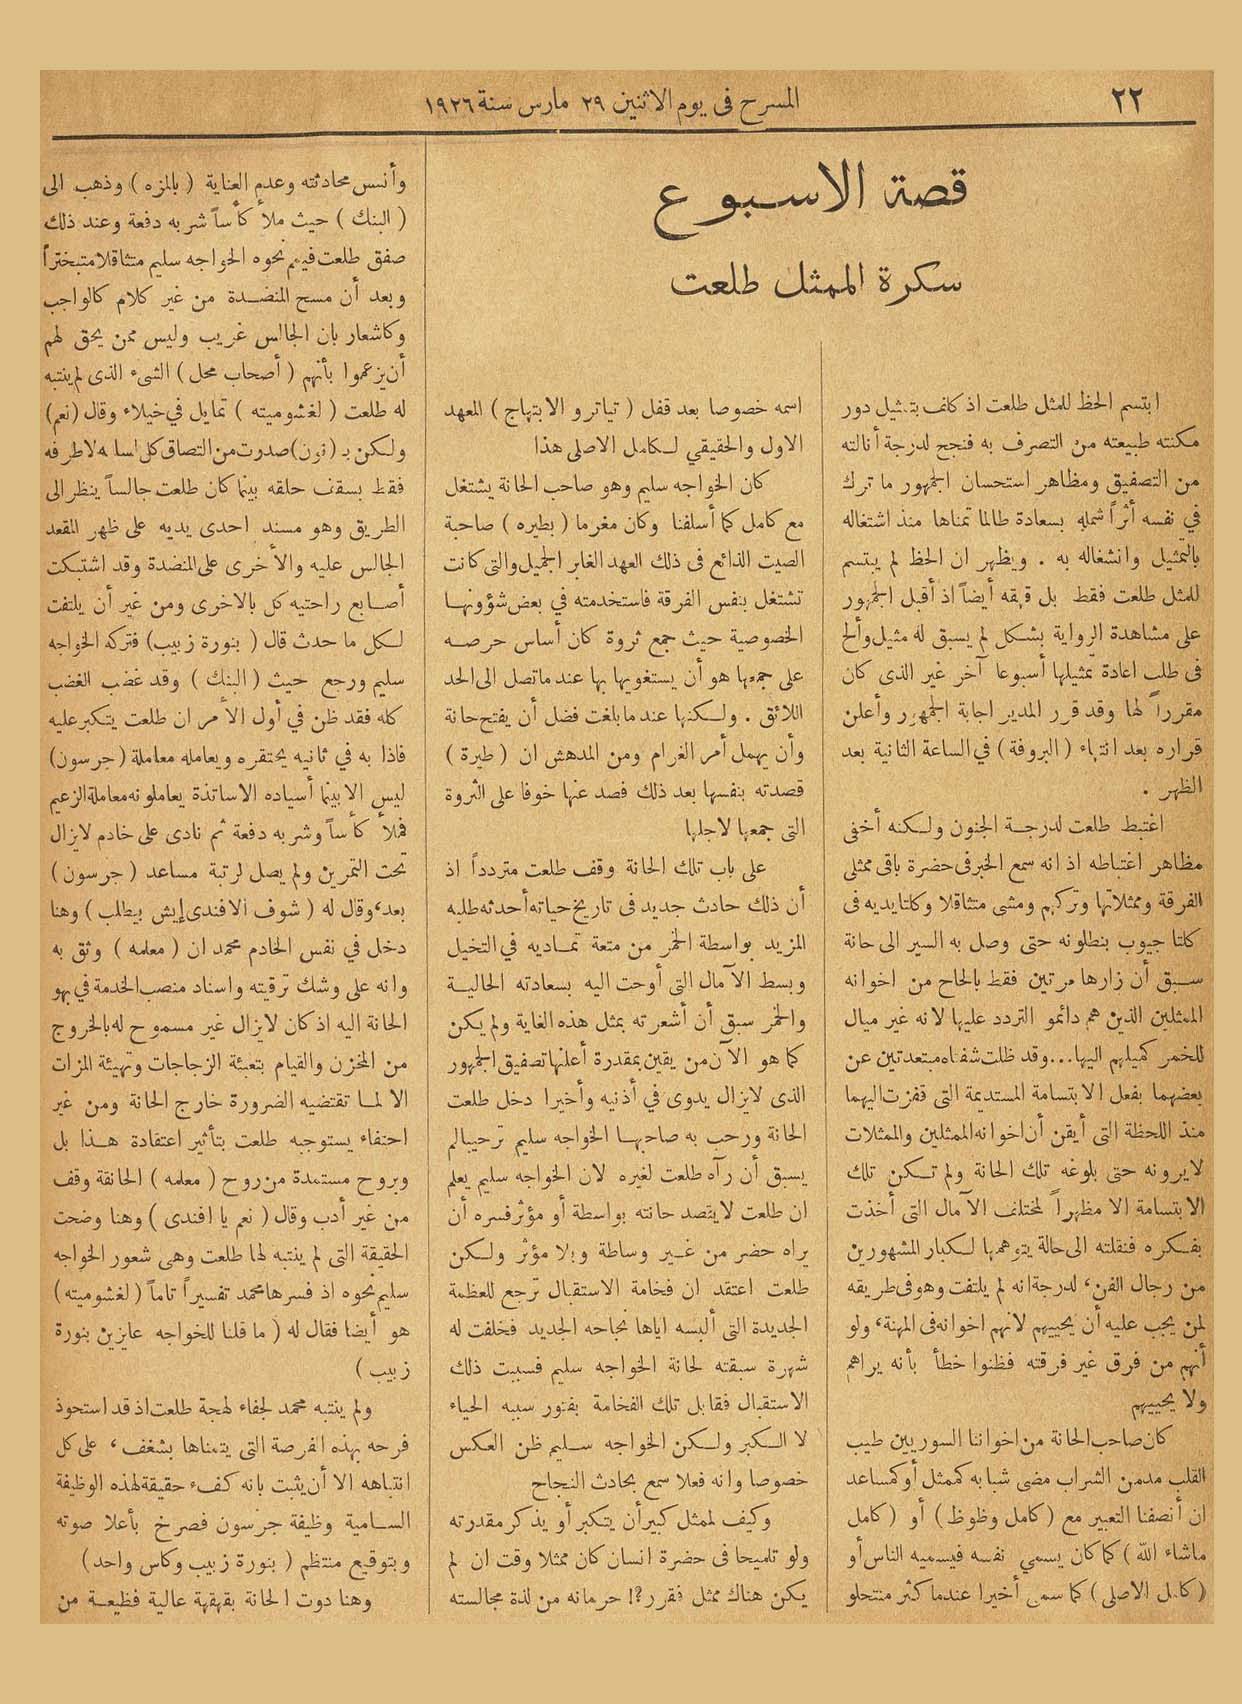 ٢٢
المسرح فى يوم الاثنين ٢٩ مارس سنة ١٩٢٦
قصة الاسبوع
سكرة الممثل طلعت
ابتسم الحظ للممثل طلعت اذ كانف بتمثيل دور
مكنته طبيعته من التصرف به فنجح لدرجة أنالته
من التصفيق ومظاهر استحسان الجمهور ما ترك
في نفسه أثراً شمله بسعادة طالما تمناها منذ اشتغاله
بالتمثيل وانشغاله به . ويظهر ان الحظ لم يبتسم
للمثل طلعت فقط بل قهقه أيضاً اذ أقبل الجمهور
على مشاهدة الرواية بشكل لم يسبق له مثيل وألح
فى طلب اعادة تمثيلها أسبوعا آخر غير الذى كان
مقرراً لها وقد قرر المدير اجابة الجمهور وأعلن
قراره بعد انتهاء ( البروفة ) في الساعة الثانية بعد
الظهر .
اغتبط طلعت لدرجة الجنون ولكنه أخفى
مظاهر اغتباطه اذ انه سمع الخبر فى حضرة باقى ممثلى
الفرقة وممثلاتها وتركهم ومشى متثاقلا وكلتا يديه فى
كلتا جيوب بنطلونه حتى وصل به السير الى حانة
سبق أن زارها مرتين فقط بالحاح من اخوانه
الممثلين الذين هم دائمو التردد عليها لانه غير ميال
للخمر كميلهم اليها...وقد ظلت شفتاه مبتعدتين عن
بعضهما بفعل الابتسامة المستديمة التى قفزت اليهما
منذ اللحظة التى أيقن أن اخوانه الممثلين والممثلات
لا يرونه حتى بلوغه تلك الحانة ولم تكن تلك
الابتسامة الا مظهراً لمختلف الآمال التى أخذت
بفكره فنقلته الى حالة يتوهمها لكبار المشهورين
من رجال الفن، لدرجة انه لم يلتفت وهو فى طريقه
لمن يجب عليه أن يحييهم لانهم اخوانه فى المهنة، ولو
أنهم من فرق غير فرقته فظنوا خطأ بأنه يراهم
ولا يحييهم
كان صاحب الحانة من اخواننا السوريين طيب
القلب مدمن الشراب مضى شبابه كممثل أو كمساعد
ان أنصفنا التعبير مع ( كامل وظوظ ) أو ( كامل
ماشاء الله ) كما كان يسمي نفسه فيسميه الناس أو
( كامل الاصلى ) كما سمى أخيرا عندما كثر منتحلو
اسمه خصوصا بعد قفل ( تياترو الابتهاج ) المعهد
الاول والحقيقي لكامل الاصلى هذا
كان الخواجه سليم وهو صاحب الحانة يشتغل
مع كامل كما أسلفنا وكان مغرما ( بطيره ) صاحبة
الصيت الذائع فى ذلك العهد الغابر الجميل والتى كانت
تشتغل بنفس الفرقة فاستخدمته في بعض شؤونها
الخصوصية حيث جمع ثروة كان أساس حرصه
على جمعها هو أن يستغويها بها عند ما تصل الى الحد
اللائق . ولكنها عند ما بلغت فضل أن يفتح حانة
وأن يهمل أمر الغرام ومن المدهش ان ( طيرة )
قصدته بنفسها بعد ذلك فصد عنها خوفا على الثروة
التى جمعها لاجلها
على باب تلك الحانة وقف طلعت متردداً اذ
أن ذلك حادث جديد فى تاريخ حياته أحدثه طلبه
المزيد بواسطة الخمر من متعة تماديه في التخيل
وبسط الآمال التى أوحت اليه بسعادته الحالية
والخمر سبق أن أشعرته بمثل هذه الغاية ولم يكن
كما هو الآن من يقين بمقدرة أعلنها تصفيق الجمهور
الذى لايزال يدوى في أذنيه وأخيرا دخل طلعت
الحانة ورحب به صاحبها الخواجه سليم ترحيبا لم
يسبق أن رآه طلعت لغيره لان الخواجه سليم يعلم
ان طلعت لا يقصد حانته بواسطة أو مؤثر فسره أن
يراه حضر من غير وساطة وبلا مؤثر ولكن
طلعت اعتقد ان فخامة الاستقبال ترجع للعظمة
الجديدة التى ألبسه اياها نجاحه الجديد فخلفت له
شهرة سبقته لحانة الخواجه سليم فسببت ذلك
الاستقبال فقابل تلك الفخامة بفتور سببه الحياء
لا الكبر ولكن الخواجه سليم ظن العكس
خصوصا وانه فعلا سمع بحادث النجاح
وكيف لممثل كبير أن يتكبر أو يذكر مقدرته
ولو تلميحا فى حضرة انسان كان ممثلا وقت ان لم
يكن هناك ممثل فقرر؟! حرمانه من لذة مجالسته
وأنس محادثته وعدم العناية ( بالمزه ) وذهب الى
( البنك ) حيث ملأ كأساً شربه دفعة وعند ذلك
صفق طلعت فيمم نحوه الخواجه سليم متثاقلا متبختراً
وبعد أن مسح المنضدة من غير كلام كالواجب
وكاشعار بان الجالس غريب وليس ممن يحق لهم
أن يزعموا بأنهم ( أصحاب محل ) الشىء الذى لم ينتبه
له طلعت ( لغشوميته ) تمايل في خيلاء وقال ( نعم )
ولكن بـ ( نون ) صدرت من التصاق كل لسانه لا طرفه
فقط بسقف حلقه بينما كان طلعت جالساً ينظر الى
الطريق وهو مسند احدى يديه على ظهر المقعد
الجالس عليه والأخرى على المنضدة وقد اشتبكت
أصابع راحتيه كل بالاخرى ومن غير أن يلتفت
لكل ما حدث قال ( بنورة زبيب ) فتركه الخواجه
سليم ورجع حيث ( البنك ) وقد غضب الغضب
كله فقد ظن في أول الأمر ان طلعت يتكبر عليه
فاذا به في ثانيه يحتقره ويعامله معاملة ( جرسون )
ليس الا بينما أسياده الاساتذة يعاملونه معاملة الزعيم
فملأ كأساً وشربه دفعة ثم نادى على خادم لايزال
تحت التمرين ولم يصل لرتبة مساعد ( جرسون )
بعد، وقال له ( شوف الافندى إيش بيطلب ) وهنا
دخل في نفس الخادم محمد ان ( معلمه ) وثق به
وانه على وشك ترقيته واسناد منصب الخدمة في بهو
الحانة اليه اذ كان لايزال غير مسموح له بالخروج
من المخزن والقيام بتعبئة الزجاجات وتهيئة المزات
الا لما تقتضيه الضرورة خارج الحانة ومن غير
احتفاء يستوجبه طلعت بتأثير اعتقادة هذا بل
وبروح مستمدة من روح ( معلمه ) الحانقة وقف
من غير أدب وقال ( نعم يا افندى ) وهنا وضحت
الحقيقة التى لم ينتبه لها طلعت وهى شعور الخواجه
سليم نحوه اذ فسرها محمد تفسيراً تاماً ( لغشوميته )
هو أيضا فقال له ( ما قلنا للخواجه عايزين بنورة
زبيب )
ولم ينتبه محمد لجفاء لهجة طلعت اذ قد استحوذ
فرحه بهذه الفرصة التى يتمناها بشغف ، على كل
انتباهه الا أن يثبت بانه كفء حقيقة لهذه الوظيفة
السامية وظيفة جرسون فصرخ بأعلا صوته
وبتوقيع منتظم ( بنورة زبيب وكاس واحد )
وهنا دوت الحانة بقهقهة عالية فظيعة من